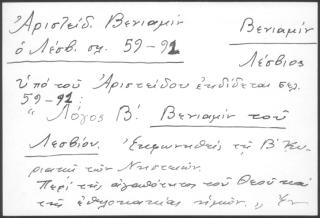 Ἀριστείδ. Βενιαμίν
ὁ Λέσβ. σελ. 59-92
Βενιαμίν
Λέσβιος
Ὑπό τοῦ Ἀριστείδου ἐκδίδεται σελ.
59-92;
"Λόγος Β΄. Βενιαμίν τοῦ
Λεσβίου. Ἐκφωνηθείς τῇ Β΄ Κυ-
ριακῇ τῶν Νηστειῶν.
Περί τῆς ἀγαθότητος τοῦ Θεοῦ καί
τῆς